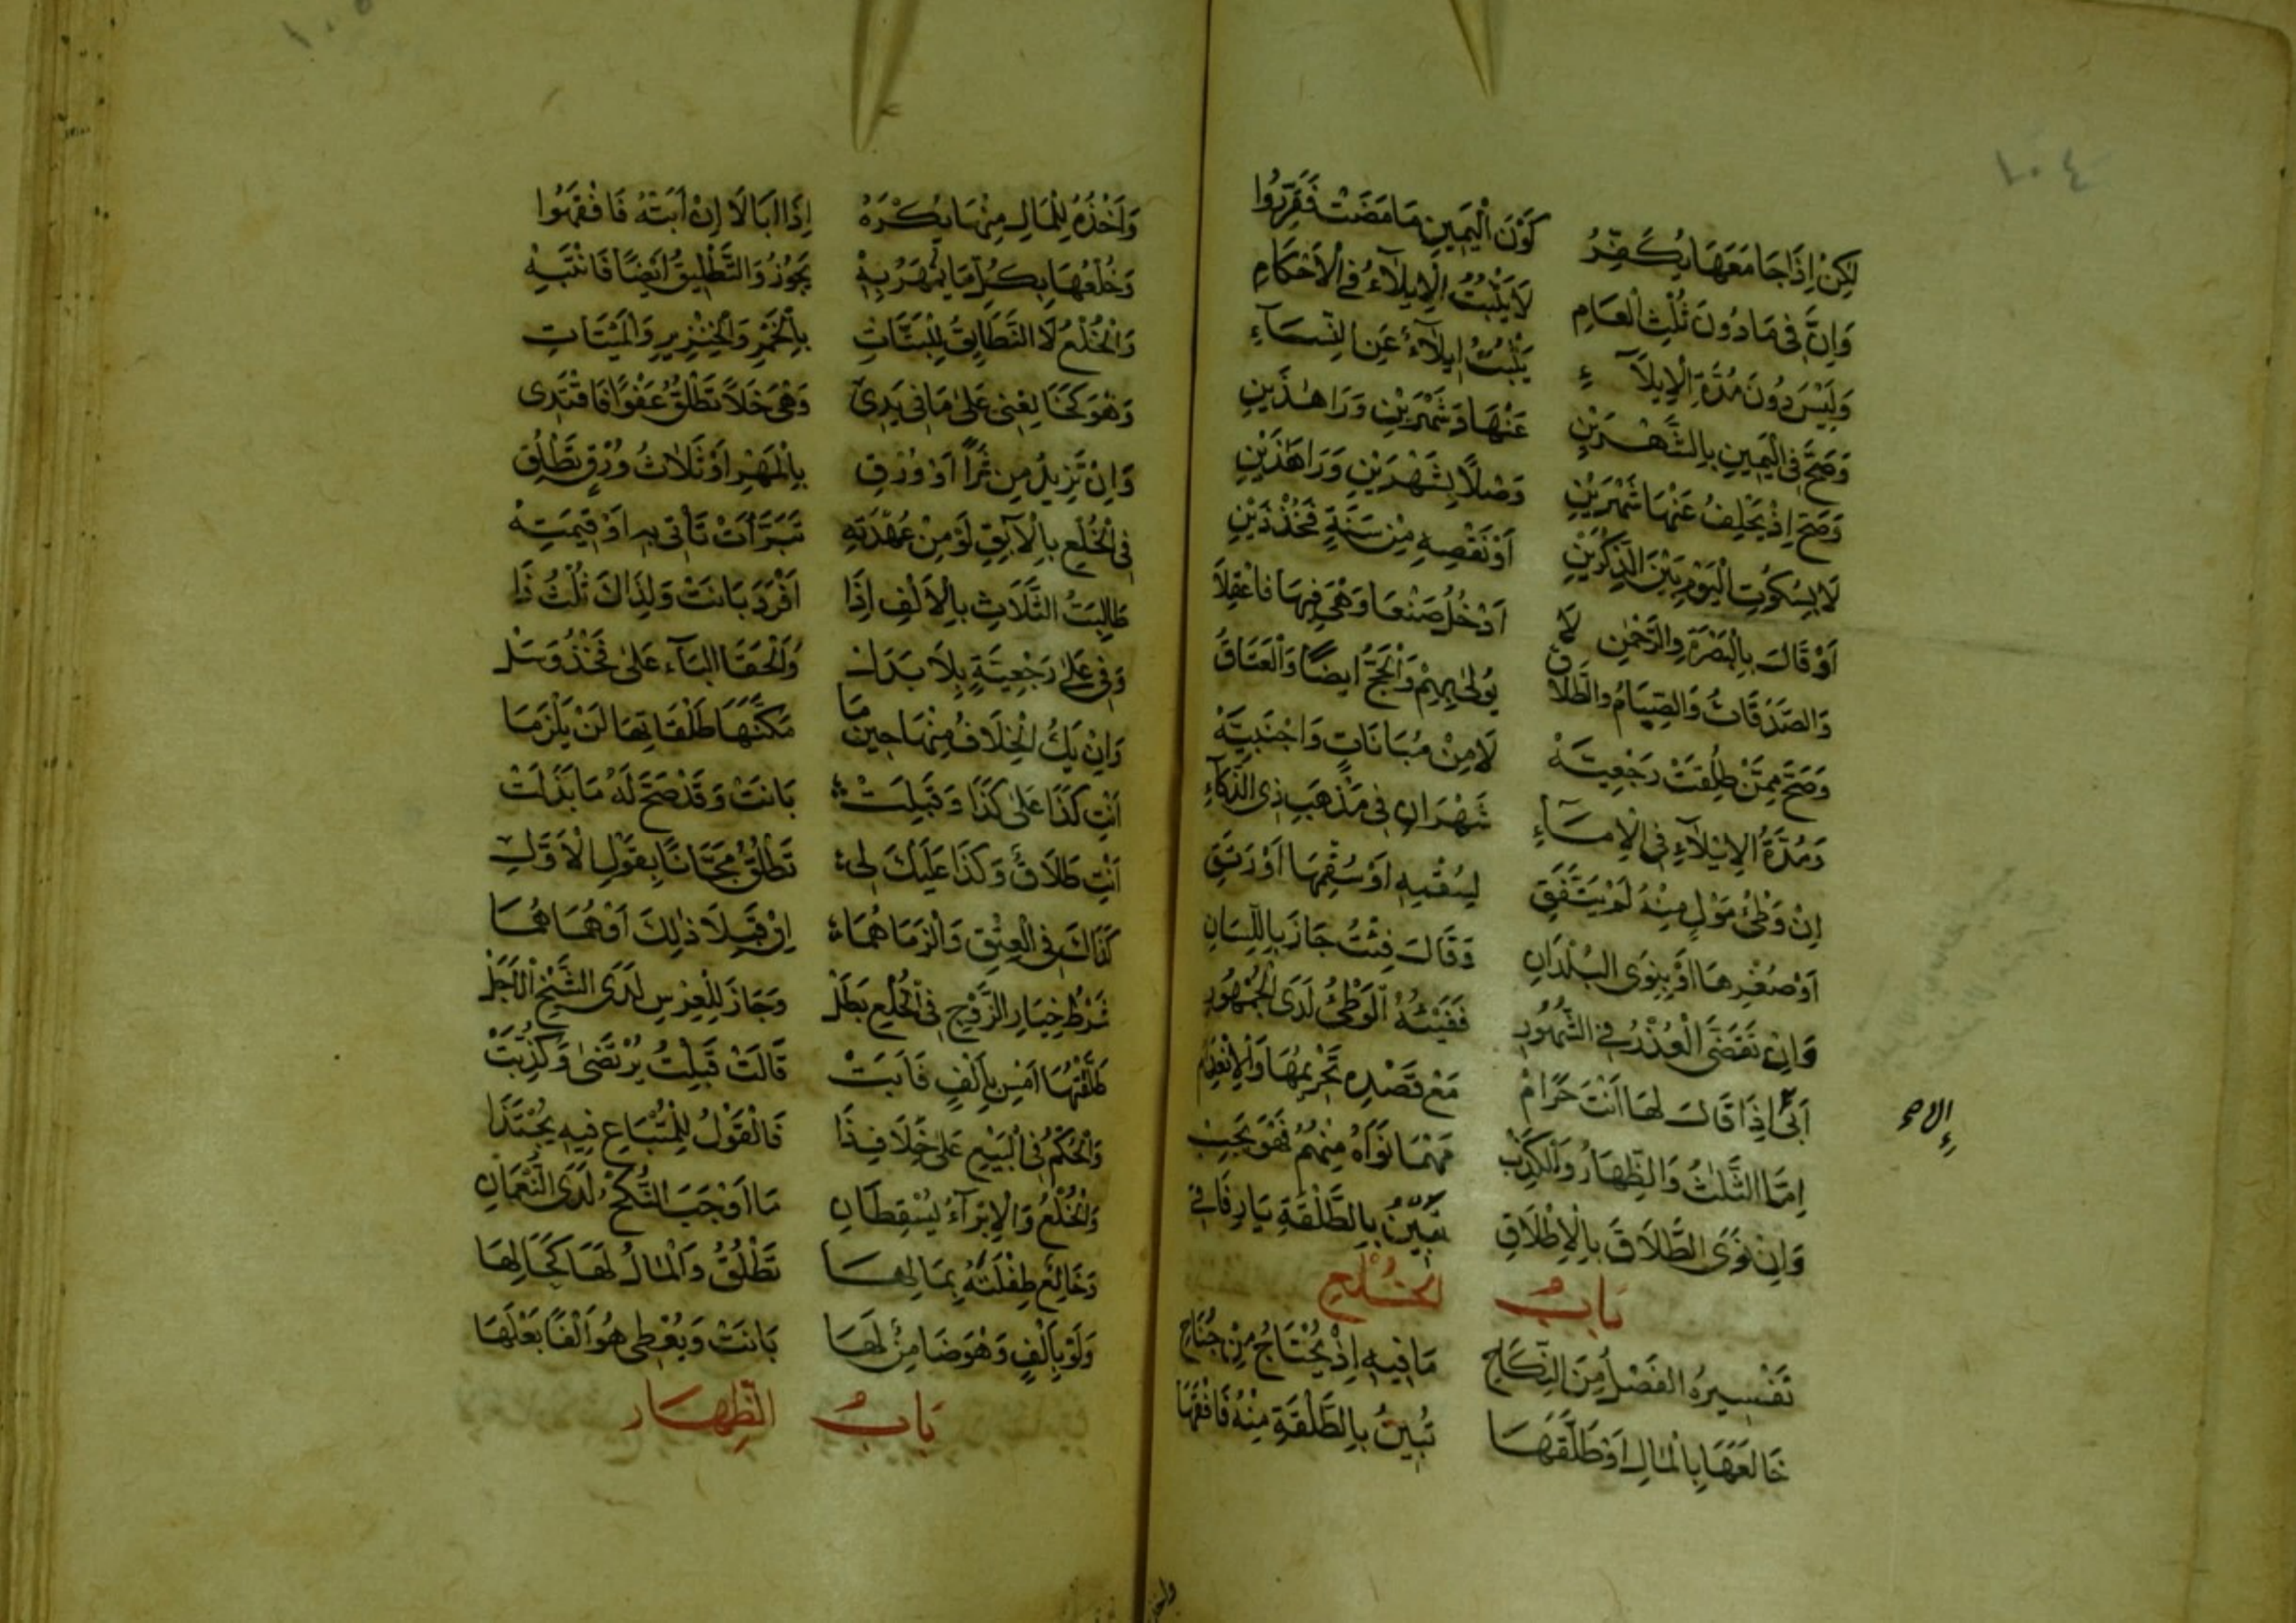 ١٠٤
لٰكِنْ إِذَا جَامَعَهَا يُكَفِّرُ كَوْنَ الْيَمِينِ مَا مَضَتْ فَقَرِّرُوا
وَإِنَّ فِي مَا دُونَ ثُلْثِ الْعَامِ لَا يَثْبُتُ الْإِيلَاءُ فِي الْأَحْكَامِ
وَلَيْسَ دُونَ مُدَّةِ الْإِيلَاءِ يَثْبُتُ إِيلَاءٌ عَنِ النِّسَاءِ
وَصَحَّ فِي الْيَمِينِ بِالشَّهْرَيْنِ عَنْهَا وَشَهْرَيْنِ وَرَا هٰذَيْنِ
وَصَحَّ إِذْ يَحْلِفُ عَنْهَا شَهْرَيْنِ وَصْلًا بِشَهْرَيْنِ وَرَا هٰذَيْنِ
لَا بِسُكُوتِ الْيَوْمِ بَيْنَ الذِّكْرَيْنِ أَوْ نَقْصِهِ مِنْ سَنَةٍ فَخُذْ ذَيْنِ
أَوْ قَالَ بِالْبَصْرَةِ وَالرَّحْمٰنِ لَا أَدْخُلُ صَنْعَا وَهْيَ فِيهَا فَاعْقِلَا
وَالصَّدَقَاتُ وَالصِّيَامُ وَالطَّلَاقُ يُولَى بِهِمْ وَالْحَجُّ أَيْضًا وَالْعَتَاقُ
وَصَحَّ مِمَّنْ طُلِّقَتْ رَجْعِيَّهْ لَا مِنْ مُبَانَاتٍ وَأَجْنَبِيَّهْ
وَمُدَّةُ الْإِيْلَاءِ فِي الْإِمَاءِ شَهْرَانِ فِي مَذْهَبِ ذِي الذَّكَاءِ
إِنْ وَطْئُ مُوْلٍ مِنْهُ لَمْ يَتَّفِقِ لِسُقْمِهِ أَوْ سُقْمِهَا أَوْ رَتَقِ
أَوْ صُغْرِهَا أَوْ بِنَوَى الْبُلْدَانِ وَقَالَ فِئْتُ جَازَ بِاللِّسَانِ
وَإِنْ تَقَضَّى الْعُذْرُ فِي الشُّهُورِ فَفَيْئُهُ الْوَطْئُ لَدَى الْجُمْهُورِ
أَبَّى إِذَا قَالَ لَهَا أَنْتَ حَرَامْ مَعْ قَصْدِهِ تَحْرِيمَهَا
إِمَّا الثَّلٰثُ وَالظِّهَارُ وَالْكَذِبْ مَهْمَا نَوَاهُ مِنْهُمُ فَهْوَ يَجِبْ
وَإِنْ نَوَى الطَّلَاقَ بِالْإِطْلَاقِ تَبِيْنُ بِالطَّلْقَةِ يَا رِفَاقِي
بَابُ الْخُلْعِ
تَفْسِيرُهُ الْفَصْلُ مِنَ النِّكَاحِ مَا فِيهِ إِذْ يُحْتَاجُ مِنْ جُنَاحِ
خَالَعَهَا بِالْمَالِ أَوْ طَلَّقَهَا تَبِيْنُ بِالطَّلْقَةِ مِنْهُ فَافْقَهَا
١٠٥
وَأَخْذُهُ لِلْمَالِ مِنْهَا يُكْرَهُ إِذَا أَبَا لَا إِنْ أَبَتْهُ فَافْقَهُوا
وَخُلْعُهَا بِكُلِّ مَا يُمْهَرُ بِهْ يَجُوزُ وَالتَّطْلِيقُ أَيْضًا فَانْتَبِهْ
وَالْخُلْعُ لَا التَّطَالِقُ لِلْبَتَّاتِ بِالْخَمْرِ وَالْخِنْزِيرِ وَالْمَيْتَاتِ
وَهْوَ كَخَالِعْنِي عَلَى مَا فِي يَدِي وَهْيَ خَلَا تَطْلُقُ عَفْوًا فَاقْتَدِي
وَإِنْ تَزِيدُ مِنْ ثَرًا أَوْ وَرِقِ بِالْمَهْرِ أَوْ ثَلَاثُ وُرْقٍ تَطْلُقِ
فِي الْخُلْعِ بِالْآبِقِ لَوْ مِنْ عُهْدَتِهِ تَبَرَّأَتْ تَأْتِي بِهِ أَوْ قِيمَتِهْ
طَالِبَتُ الثَّلَاثِ بِالْأَلْفِ إِذَا أَفْرَدَ بَانَتْ وَلِذَاكَ ثُلْثُ ذَا
وَفِي عَلَى رَجْعِيَّةٍ بِلَا بَدَلْ وَأَلْحَقَا الْبَاءَ عَلَى فَخُذْ وَسَلْ
وَإِنْ يَكُ الْخِلَافُ مِنْهَا حِينَمَا مَكَّنَّهَا طَلْقَاتِهَا لَنْ يَلْزَمَا
أَنْتِ كَذَا عَلَى كَذَا وَقَبِلَتْ بَانَتْ وَقَدْ صَحَّ لَهُ مَا بَذَلَتْ
أَنْتِ طَلَاقٌ وَكَذَا عَلَيْكَ لِي تَطْلُقُ مَجَّانًا بِقَوْلِ الْأَوَّلِ
كَذَاكَ فِي الْعِتْقِ وَأَلْزَمَاهُمَا إِنْ قَبِلَا ذٰلِكَ أَوْ هُمَا هُمَا
شَرْطُ خِيَارِ الزَّوْجِ فِي الْخُلْعِ بَطَلْ وَجَازَ لِلْعِرْسِ لَدَى الشَّيْخِ الْأَجَلْ
طَلَّقْتُهَا أَمْسِ بِأَلْفٍ فَأَبَتْ قَالَتْ قَبِلْتُ يُرْتَضَى وَكُذِّبَتْ
وَالْحُكْمُ فِي الْبَيْعِ عَلَى خِلَافِ ذَا فَالْقَوْلُ لِلْمُبْتَاعِ فِيهِ يُحْتَذَا
وَالْخُلْعُ وَالْإِبْرَاءُ يُسْقِطَانِ مَا أَوْجَبَ النُّكْحُ لَدَى النُّعْمَانِ
وَخَالِعْ طِفْلَتَهُ بِمَالِهَا تَطْلُقُ وَالْمَالُ لَهَا كَحَالِهَا
وَلَوْ بِأَلْفٍ وَهْوَ ضَامِنٌ لَهَا بَانَتْ وَيُعْطِي هُوَ أَلْفًا بَعْلَهَا
بَابُ الظِّهَارِ